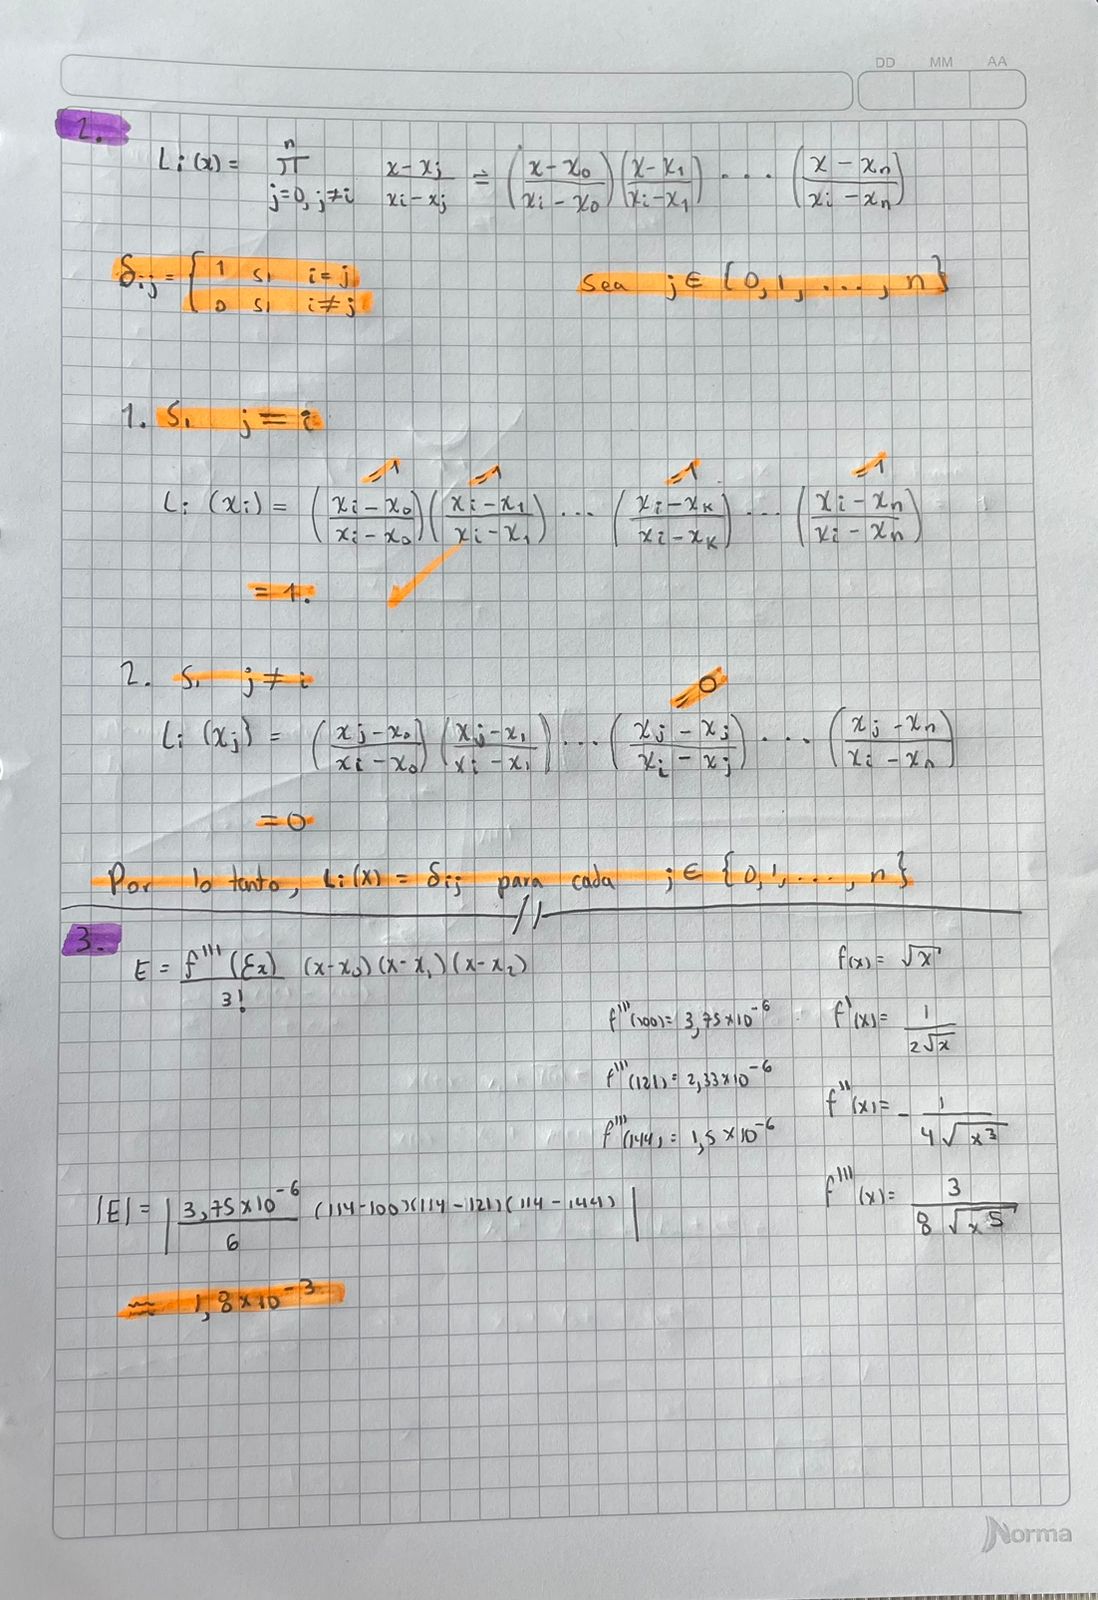 DD MM AA
2.
Li(x) = π^n_{j=0, j≠i} (x-xj)/(xi-xj) = ((x-x0)/(xi-x0))((x-x1)/(xi-x1)) ... ((x-xn)/(xi-xn))
δij = { 1 si i=j
0 si i≠j
Sea j∈{0,1,...,n}
1. Si j=i
=1 =1 =1 =1
Li(xi) = ((xi-x0)/(xi-x0))((xi-x1)/(xi-x1)) ... ((xi-xk)/(xi-xk)) ... ((xi-xn)/(xi-xn))
=1.
2. Si j≠i
=0
Li(xj) = ((xj-x0)/(xi-x0))((xj-x1)/(xi-x1)) ... ((xj-xj)/(xi-xj)) ... ((xj-xn)/(xi-xn))
=0
Por lo tanto, Li(x) = δij para cada j∈{0,1,...,n}
3.
E = f'''(ξx)/3! (x-x0)(x-x1)(x-x2)
f(x)= √x
f'''(100)= 3,75x10^-6
f'(x)= 1/(2√x)
f'''(121)= 2,33x10^-6
f''(x)= -1/(4√x^3)
f'''(144)= 1,5x10^-6
f'''(x)= 3/(8√x^5)
|E| = |3,75x10^-6/6 (114-100)(114-121)(114-144)|
≈ 1,8x10^-3
Norma